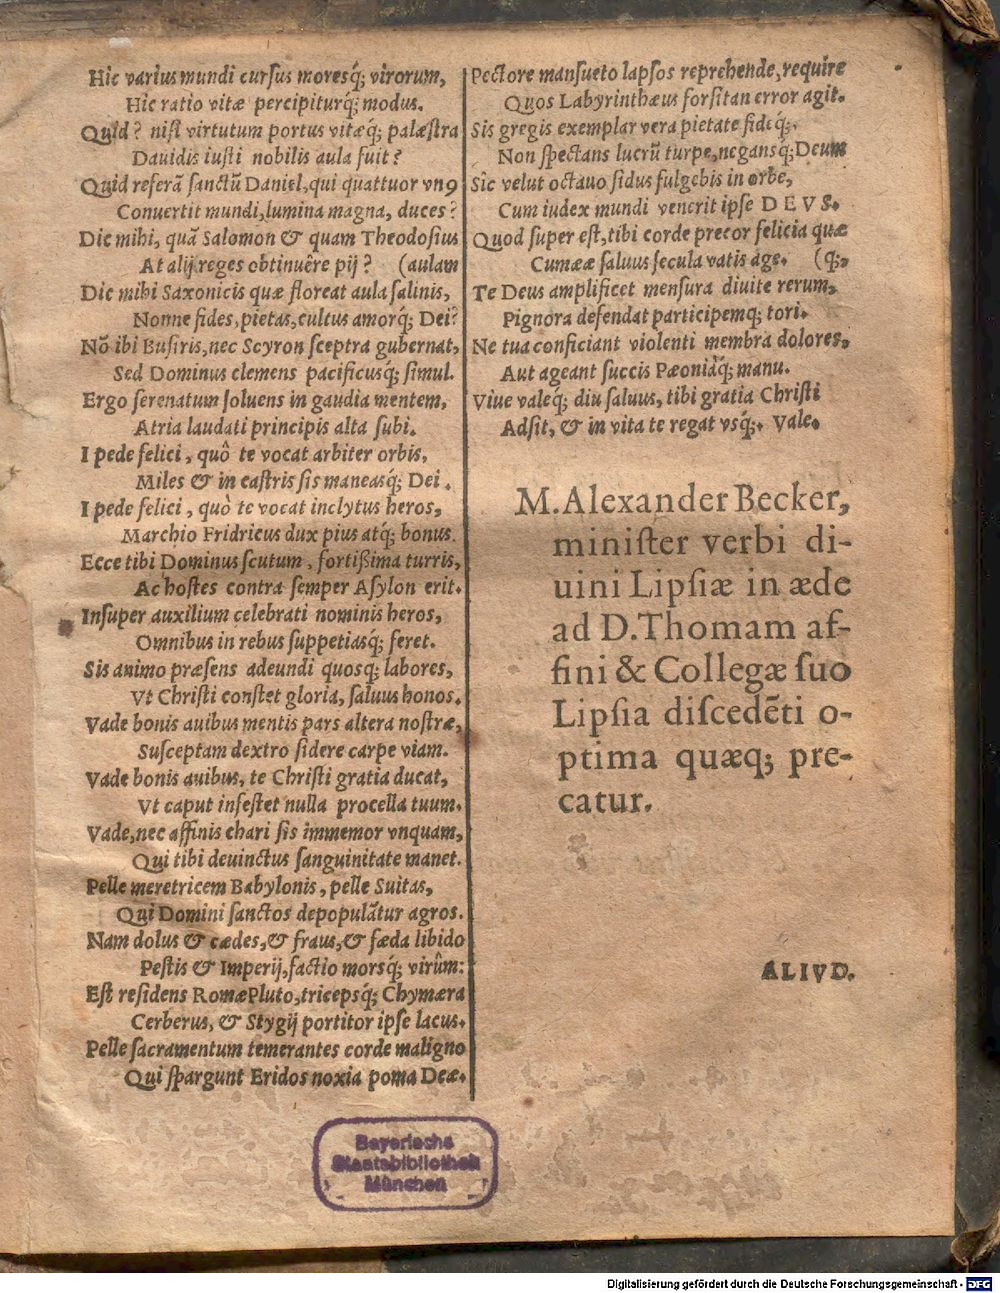 Hic varius mundi cursus moresq́; virorum,
Hic ratio vitæ percipiturq́; modus.
Quid? nisi virtutum portus vitæq́; palæstra
Dauidis iusti nobilis aula fuit?
Quid referã sanctũ Daniel, qui quattuor vnꝰ
Conuertit mundi, lumina magna, duces?
Dic mihi, quã Salomon & quam Theodosius
At alij reges obtinuêre pij? (aulam
Dic mihi Saxonicis quæ floreat aula salinis,
Nonne fides, pietas, cultus amorq́; Dei?
Nõ ibi Busiris, nec Scyron sceptra gubernat,
Sed Dominus clemens pacificusq́; simul.
Ergo serenatum soluens in gaudia mentem,
Atria laudati principis alta subi.
I pede felici, quô te vocat arbiter orbis,
Miles & in castris sis maneasq́; Dei.
I pede felici, quò te vocat inclytus heros,
Marchio Fridricus dux pius atq́; bonus.
Ecce tibi Dominus scutum, fortißima turris,
Ac hostes contra semper Asylon erit.
Insuper auxilium celebrati nominis heros,
Omnibus in rebus suppetiasq́; feret.
Sis animo præsens adeundi quosq; labores,
Vt Christi constet gloria, saluus honos.
Vade bonis auibus mentis pars altera nostræ,
Susceptam dextro sidere carpe viam.
Vade bonis auibus, te Christi gratia ducat,
Vt caput infestet nulla procella tuum.
Vade, nec affinis chari sis immemor vnquam,
Qui tibi deuinctus sanguinitate manet.
Pelle meretricem Babylonis, pelle Suitas,
Qui Domini sanctos depopulãtur agros.
Nam dolus & cædes, & fraus, & fæda libido
Pestis & Imperij, factio morsq́; virûm:
Est residens Romæ Pluto, tricepsq́; Chymæra
Cerberus, & Stygij portitor ipse lacus.
Pelle sacramentum temerantes corde maligno
Qui spargunt Eridos noxia poma Deæ.
Pectore mansueto lapsos reprehende, require
Quos Labyrinthæus forsitan error agit.
Sis gregis exemplar vera pietate fideq́;,
Non spectans lucrũ turpe, negansq́; Deum
Sic velut octauo sidus fulgebis in orbe,
Cum iudex mundi venerit ipse DEVS.
Quod super est, tibi corde precor felicia quæ
Cumææ saluus secula vatis age. (q́;,
Te Deus amplificet mensura diuite rerum,
Pignora defendat participemq; tori.
Ne tua conficiant violenti membra dolores,
Aut ageant succis Pæoniâq́; manu.
Viue valeq́; diu saluus, tibi gratia Christi
Adsit, & in vita te regat vsq́;. Vale.
M. Alexander Becker,
minister verbi di-
uini Lipsiæ in æde
ad D. Thomam af-
fini & Collegæ suo
Lipsia discedẽti o-
ptima quæq; pre-
catur.
ALIVD.
Bayerische
Staatsbibliothek
München
Digitalisierung gefördert durch die Deutsche Forschungsgemeinschaft - DFG